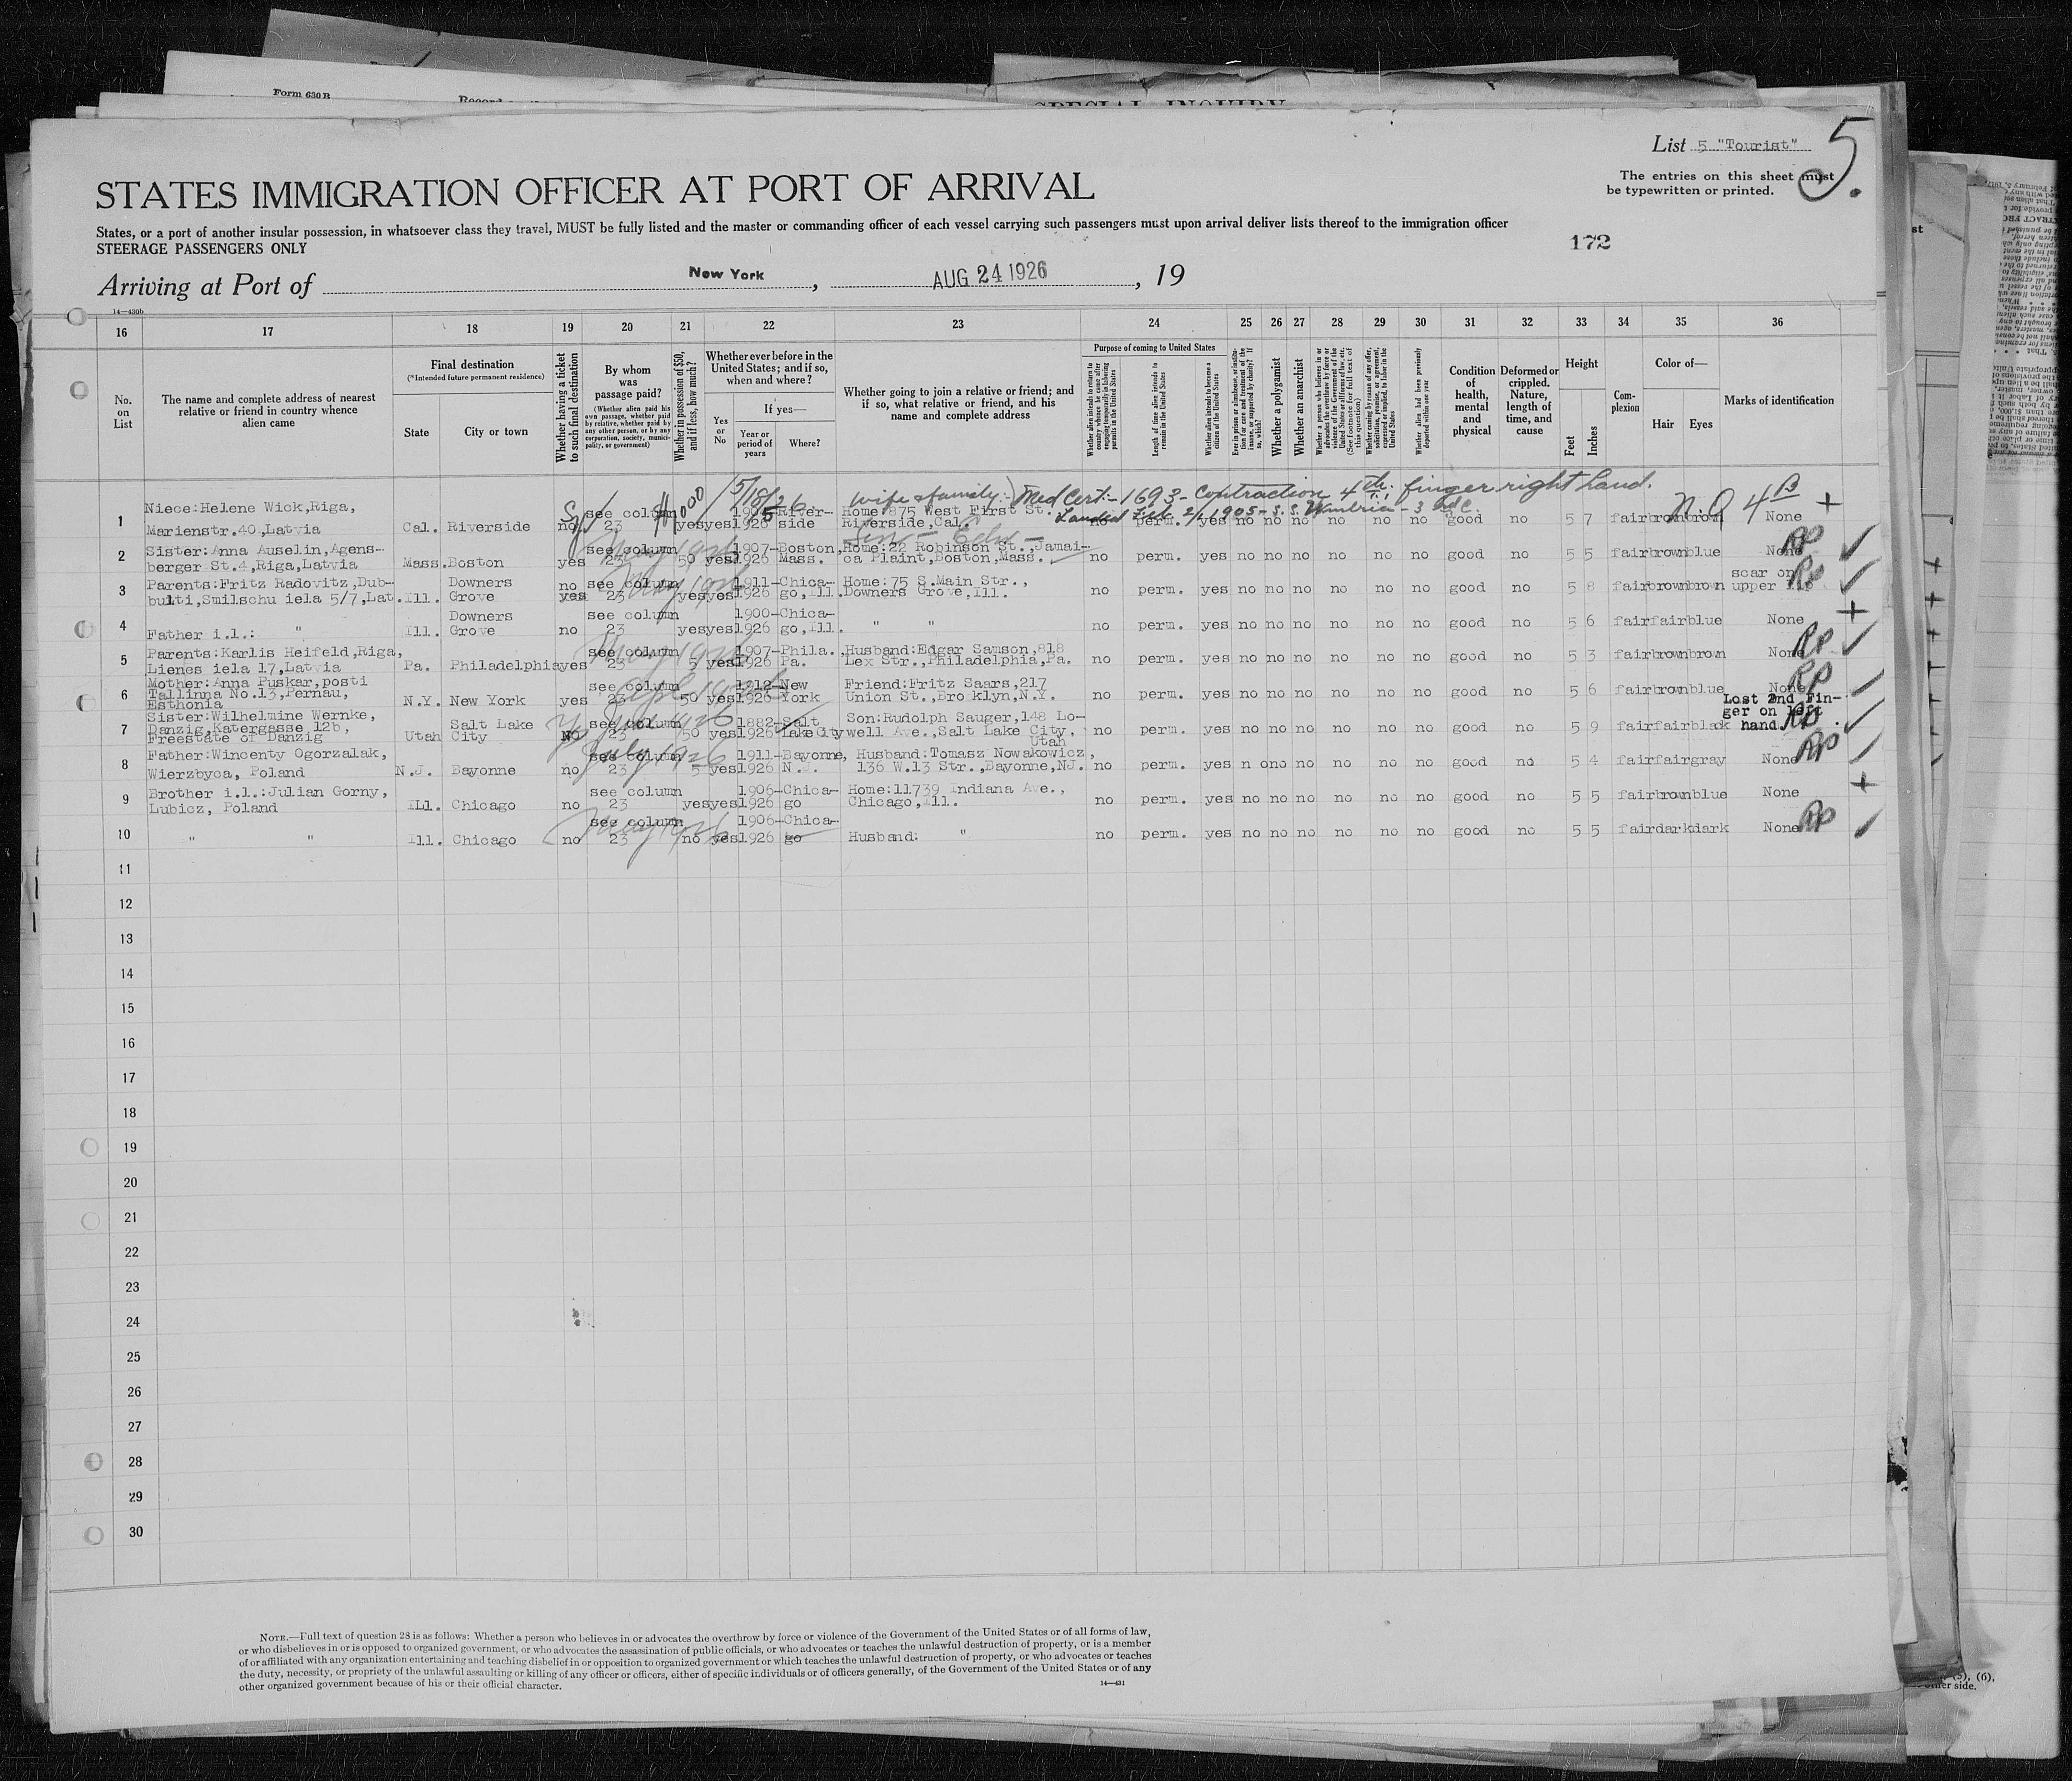 Form 630 B
SPECIAL INQUIRY
List 5 "Tourist"
5.
The entries on this sheet must
be typewritten or printed.
STATES IMMIGRATION OFFICER AT PORT OF ARRIVAL
States, or a port of another insular possession, in whatsoever class they travel, MUST be fully listed and the master or commanding officer of each vessel carrying such passengers must upon arrival deliver lists thereof to the immigration officer
STEERAGE PASSENGERS ONLY
172
Arriving at Port of New York, AUG 24 1926, 19
14—430b
16 17 18 19 20 21 22 23 24 25 26 27 28 29 30 31 32 33 34 35 36
No. on List
The name and complete address of nearest relative or friend in country whence alien came
Final destination
(*Intended future permanent residence)
State
City or town
Whether having a ticket to such final destination
By whom was passage paid?
(Whether alien paid his own passage, whether paid by relative, whether paid by any other person, or by any corporation, society, municipality, or government)
Whether in possession of $50, and if less, how much?
Whether ever before in the United States; and if so, when and where?
Yes or No
If yes—
Year or period of years
Where?
Whether going to join a relative or friend; and if so, what relative or friend, and his name and complete address
Purpose of coming to United States
Whether alien intends to return to country whence he came after engaging temporarily in laboring pursuits in the United States
Length of time alien intends to remain in the United States
Whether alien intends to become a citizen of the United States
Ever in prison or almshouse, or institution for care and treatment of the insane, or supported by charity? If so, which?
Whether a polygamist
Whether an anarchist
Whether a person who believes in or advocates the overthrow by force or violence of the Government of the United States or all forms of law, etc. (See footnote for full text of this question)
Whether coming by reason of any offer, solicitation, promise, or agreement, expressed or implied, to labor in the United States
Whether alien had been previously deported within one year
Condition of health, mental and physical
Deformed or crippled. Nature, length of time, and cause
Height
Feet
Inches
Complexion
Color of—
Hair
Eyes
Marks of identification
5/18/26 wife & family - Med Cert:- 1693 - contraction 4th finger right hand.
$1000
Landed Feb. 2/1905 - S.S. Umbria - 3rd C.
1 Niece:Helene Wick,Riga, Marienstr.40,Latvia Cal. Riverside no see column 23 yes yes 1905 1926 River-side Home:875 West First St. Riverside,Cal. no perm. yes no no no no no no good no 5 7 fair brown brown None +
2 Sister:Anna Auselin,Agens-berger St.4,Riga,Latvia Mass. Boston yes see column 23 50 yes 1907-1926 Boston, Mass. Home:22 Robinson St.,Jamai-ca Plaint,Boston,Mass. no perm. yes no no no no no no good no 5 5 fair brown blue None
3 Parents:Fritz Radovitz,Dub-bulti,Smilschu iela 5/7,Lat. Ill. Downers Grove no yes see column 23 yes yes 1911-1926 Chica-go,Ill. Home:75 S.Main Str., Downers Grove,Ill. no perm. yes no no no no no no good no 5 8 fair brown brown scar on upper lip
4 Father i.l.: " Ill. Downers Grove no see column 23 yes yes 1900-1926 Chica-go,Ill. " " no perm. yes no no no no no no good no 5 6 fair fair blue None +
5 Parents:Karlis Heifeld,Riga, Lienes iela 17,Latvia Pa. Philadelphia yes see column 23 5 yes 1907-1926 Phila., Pa. Husband:Edgar Samson,818 Lex Str.,Philadelphia,Pa. no perm. yes no no no no no no good no 5 3 fair brown brown None
6 Mother:Anna Puskar,posti Tallinna No.13,Pernau, Esthonia N.Y. New York yes see column 23 50 yes 1912-1926 New York Friend:Fritz Saars,217 Union St.,Brooklyn,N.Y. no perm. yes no no no no no no good no 5 6 fair brown blue None
7 Sister:Wilhelmine Wernke, Danzig,Katergasse 12b, Freestate of Danzig Utah Salt Lake City No see column 23 50 yes 1882-1926 Salt Lake City Son:Rudolph Sauger,148 Lo-well Ave.,Salt Lake City, Utah no perm. yes no no no no no no good no 5 9 fair fair black Lost 2nd Fin-ger on left hand.
8 Father:Wincenty Ogorzalak, Wierzbyca, Poland N.J. Bayonne no see column 23 5 yes 1911-1926 Bayonne, N.J. Husband:Tomasz Nowakowicz, 136 W.13 Str.,Bayonne,NJ. no perm. yes n ono no no no no good no 5 4 fair fair gray None
9 Brother i.l.:Julian Gorny, Lubicz, Poland Ill. Chicago no see column 23 yes yes 1906-1926 Chica-go Home:11739 Indiana Ave., Chicago,Ill. no perm. yes no no no no no no good no 5 5 fair brown blue None +
10 " " Ill. Chicago no see column 23 no yes 1906-1926 Chica-go Husband: " no perm. yes no no no no no no good no 5 5 fair dark dark None
11
12
13
14
15
16
17
18
19
20
21
22
23
24
25
26
27
28
29
30
NOTE.—Full text of question 28 is as follows: Whether a person who believes in or advocates the overthrow by force or violence of the Government of the United States or of all forms of law,
or who disbelieves in or is opposed to organized government, or who advocates the assassination of public officials, or who advocates or teaches the unlawful destruction of property, or is a member
of or affiliated with any organization entertaining and teaching disbelief in or opposition to organized government or which teaches the unlawful destruction of property, or who advocates or teaches
the duty, necessity, or propriety of the unlawful assaulting or killing of any officer or officers, either of specific individuals or of officers generally, of the Government of the United States or of any
other organized government because of his or their official character.
14—431